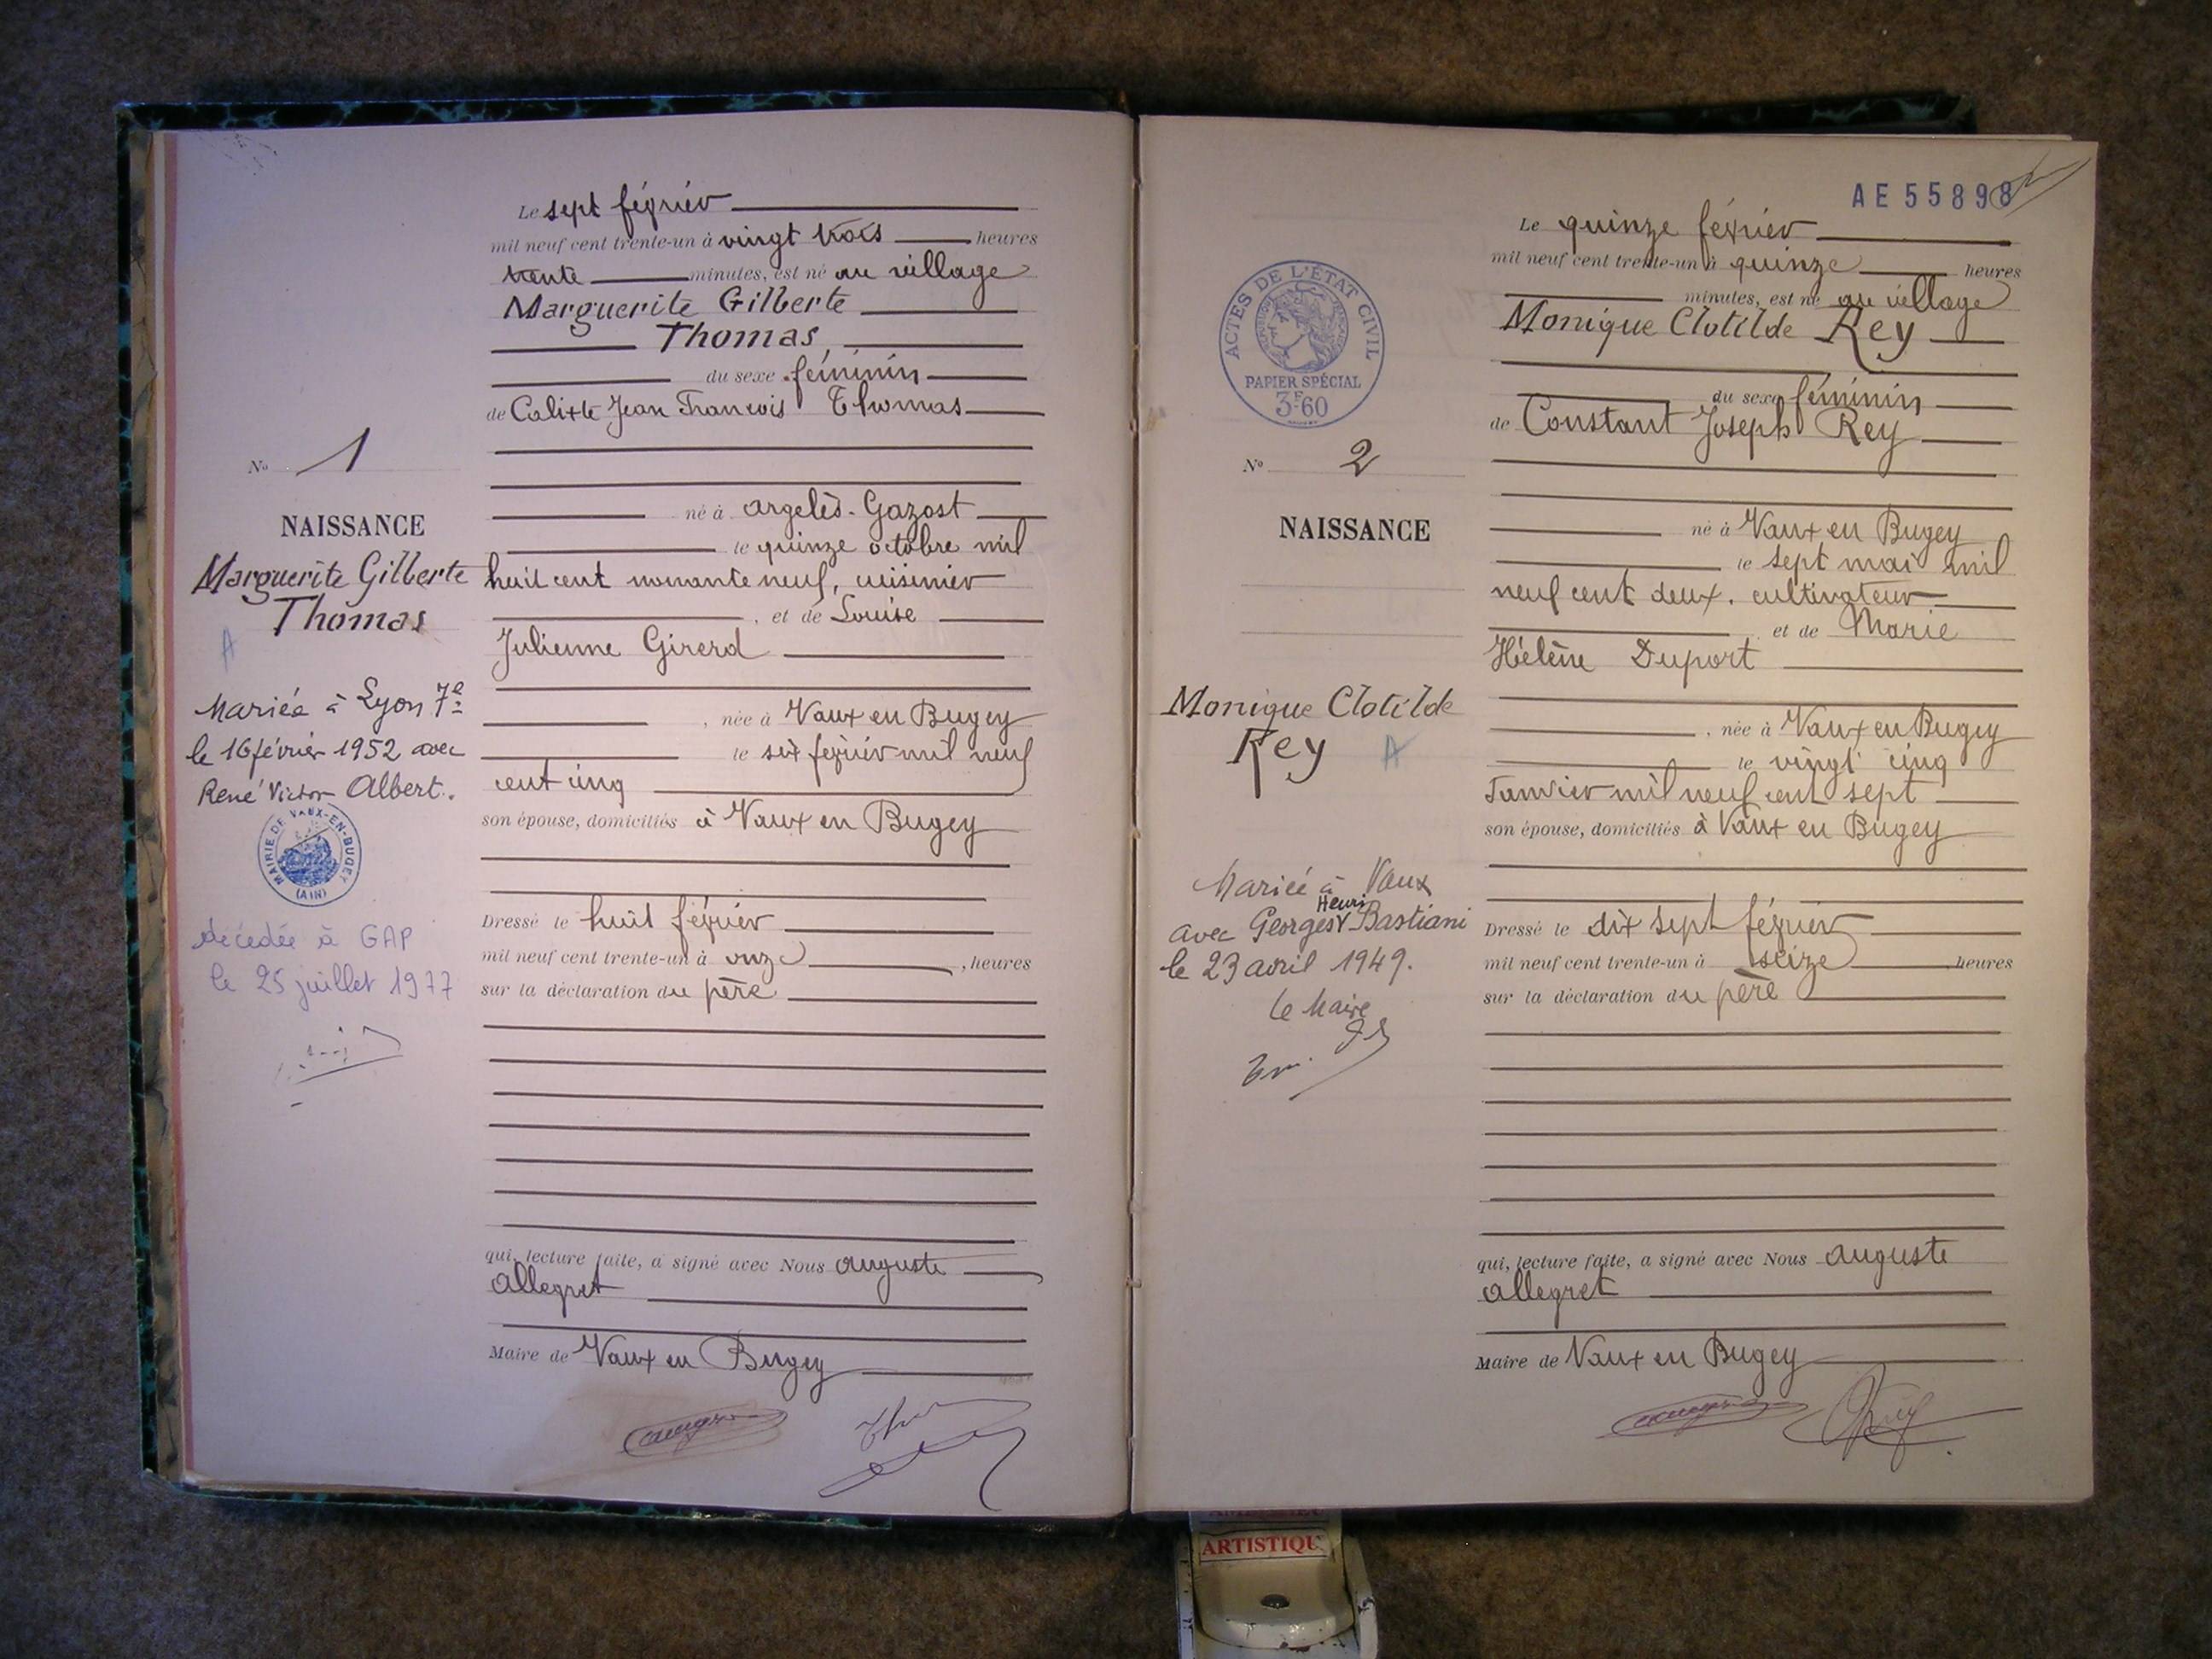 Le sept février
mil neuf cent trente-un à vingt trois heures
trente minutes, est né au village
Marguerite Gilberte
Thomas
du sexe féminin
de Calixte Jean Francois Thomas
né à Argelès-Gazost
le quinze octobre mil
huit cent nonante neuf, cuisinier
, et de Louise
Julienne Girerd
, née à Vaux en Bugey
le six février mil neuf
cent cinq
son épouse, domiciliés à Vaux en Bugey
Dressé le huit février
mil neuf cent trente-un à onze , heures
sur la déclaration du père
qui, lecture faite, a signé avec Nous Auguste
Allegret
Maire de Vaux en Bugey
No 1
NAISSANCE
Marguerite Gilberte
Thomas
A
Mariée à Lyon 7e
le 16 février 1952 avec
René Victor Albert.
MAIRIE DE VAUX-EN-BUGEY
(AIN)
décédée à GAP
le 25 juillet 1977
AE 55898
Le quinze février
mil neuf cent trente-un à quinze heures
minutes, est né au village
Monique Clotilde Rey
du sexe féminin
de Constant Joseph Rey
né à Vaux en Bugey
le sept mai mil
neuf cent deux, cultivateur
et de Marie
Hélène Duport
, née à Vaux en Bugey
le vingt cinq
Janvier mil neuf cent sept
son épouse, domiciliés à Vaux en Bugey
Dressé le dix sept février
mil neuf cent trente-un à seize heures
sur la déclaration du père
qui, lecture faite, a signé avec Nous Auguste
Allegret
Maire de Vaux en Bugey
ACTES DE L'ÉTAT CIVIL
PAPIER SPÉCIAL
3F60
No 2
NAISSANCE
Monique Clotilde
Rey A
Mariée à Vaux
Henri
avec Georges Bastiani
le 23 avril 1949.
le Maire
ARTISTIQU